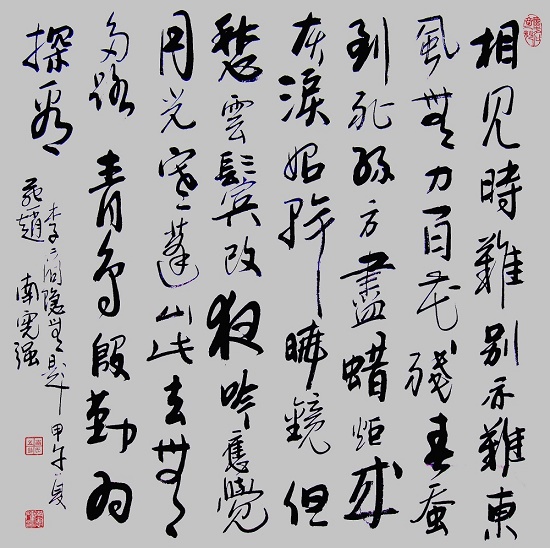 相見時難別亦難東
風無力百花殘春蚕
到死絲方盡蜡炬成
灰淚始乾曉鏡但
愁雲鬢改夜吟應覺
月光寒蓬山此去無
多路青鳥殷勤為
探看
李商隐無題 甲午夏